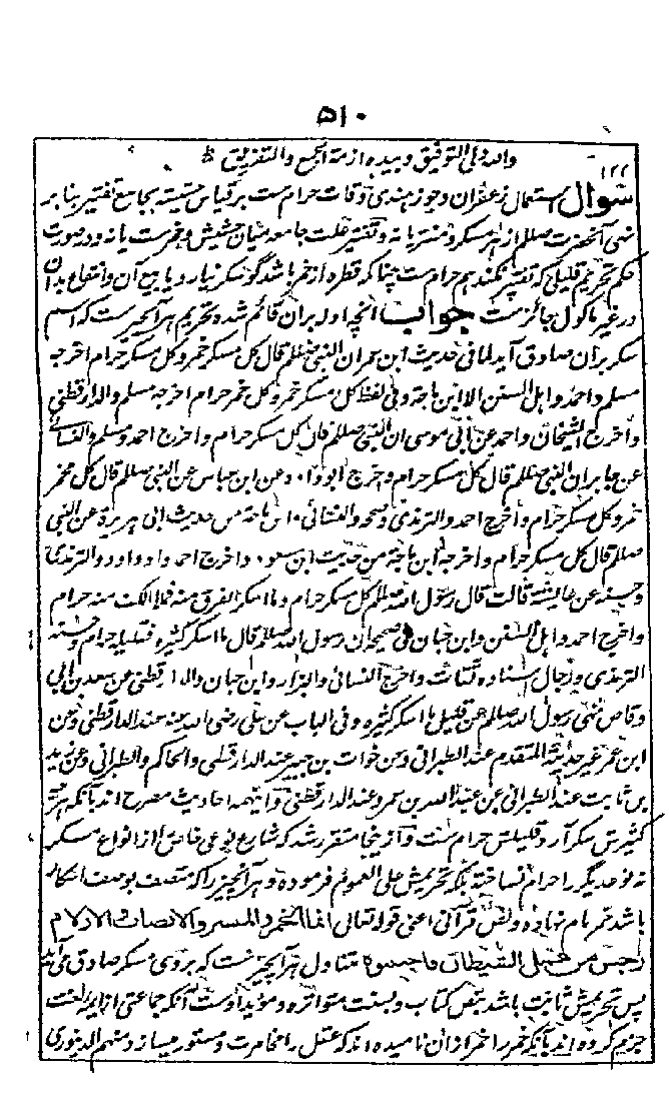 ۵۱۰
والله ولی التوفیق وبیده ازمة الجمع والتفریق
۱۲۲
سوال استعمال زعفران وجوز هندی وقات حرام ست برقیاس حشیشه بجامع تفتیر بنا بر
نهی آنحضرت صلعم از هر مسکر ومفتر یا نه وتفتیر علت جامعه میان حشیش وخمرست یا نه ودرصورت
حکم تحریم قلیلی که تفتیر نکند هم حرام ست چنانکه قطره از خمر باشد گو سکر نیارد یا بیع آن وانتفاع بدان
در غیر ماکول جائزست جواب انچه ادله بران قائم شده تحریم هرآن چیزست که اسم
مسکر بران صادق آید لما فی حدیث ابن عمر ان النبی صلعم قال کل مسکر خمر وکل مسکر حرام اخرجه
مسلم واحمد واهل السنن الا ابن ماجة وفی لفظ کل مسکر خمر وکل خمر حرام اخرجه مسلم والدارقطنی
واخرج الشیخان واحمد عن أبی موسی ان النبی صلعم قال کل مسکر حرام واخرج احمد ومسلم والنسائی
عن جابر ان النبی صلعم قال کل مسکر حرام واخرج ابوداود عن ابن عباس عن النبی صلعم قال کل مخمر
خمر وکل مسکر حرام واخرج احمد والترمذی وصححه والنسائی وابن ماجة من حدیث ابی هریرة عن النبی
صلعم قال کل مسکر حرام واخرجه ابن ماجة من حدیث ابن مسعود واخرج احمد وابوداود والترمذی
وحسنه عن عایشة قالت قال رسول الله صلعم کل مسکر حرام وما اسکر الفرق منه فملأ الکف منه حرام
واخرج احمد واهل السنن وابن حبان فی صحیحه ان رسول الله صلعم قال ما اسکر کثیره فقلیله حرام وحسنه
الترمذی ورجال اسناده ثقات واخرج النسائی والبزار وابن حبان والدارقطنی عن سعد بن ابی
وقاص نهی رسول الله صلعم عن قلیل ما اسکر کثیره وفی الباب عن علی رضی الله عنه عند الدارقطنی وعن
ابن عمر غیر حدیثه المتقدم عند الطبرانی وعن خوات بن جبیر عند الدارقطنی والحاکم والطبرانی وعن زید
بن ثابت عند الطبرانی وعن عبد الله بن عمرو عند الدارقطنی واینهمه احادیث مصرح اند بآنکه هرچه
کثیرش سکر آرد قلیلش حرام ست وازینجا متقرر شد که شارع نوعی خاص از انواع مسکر
نه نوع دیگر را حرام نساخته بلکه تحریمش علی العموم فرموده وهر آنچیز را که متصف بوصف اسکار
باشد خمر نام نهاده ونص قرآنی اعنی قوله تعالی انما الخمر والمیسر والانصاب والازلام
رجس من عمل الشیطان فاجتنبوه متناول هر آنچیزست که بروی مسکر صادق می آید
پس تحریمش ثابت باشد بنص کتاب وبسنت متواتره ومؤید اوست آنکه جماعتی از ایمه لغت
جزم کرده اند بآنکه خمر را خمر ازان نامیده اند که عقل را مخامرت ومستور میسازد ومنهم الدینوری